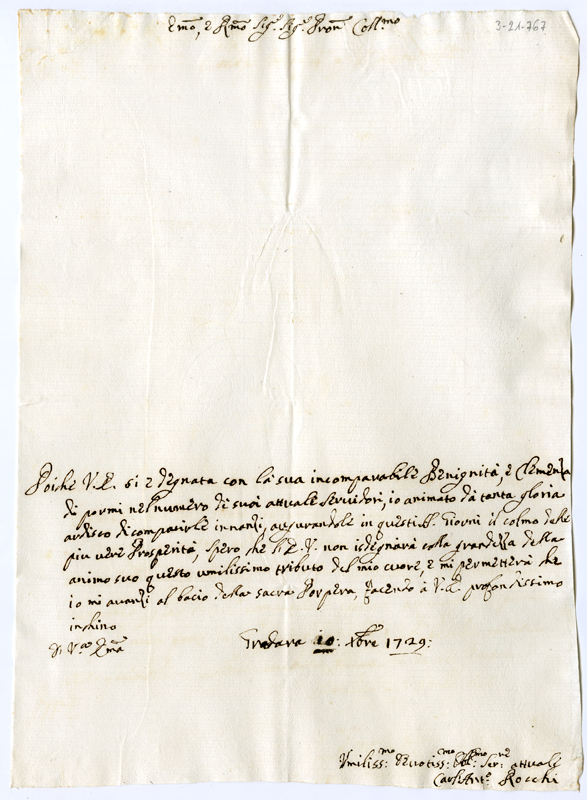 Emo, e Rmo Sig.r Sig.r Pron Coll.mo
3-21-767
Poiche V.E. si è degnata con la sua incomparabile Benignità, e Clemenza
di pormi nel numero di suoi attuale Servidori, io animato da tanta gloria
ardisco di comparirle innanzi, augurandole in questi SS. Giorni il colmo delle
piu vere Prosperità, spero che l'E.V. non isdegnarà colla grandezza dello
animo suo questo umilissimo tributo del mio cuore, e mi permetterà che
io mi avanzi al bacio della sacra Porpora, facendo à V.E. profondissimo
inchino
Di V.ra Ema
Gradara 10: Xbre 1729:
Umiliss:mo devotiss:mo Obl:mo Ser:re attuale
Carl'Ant.o Rocchi